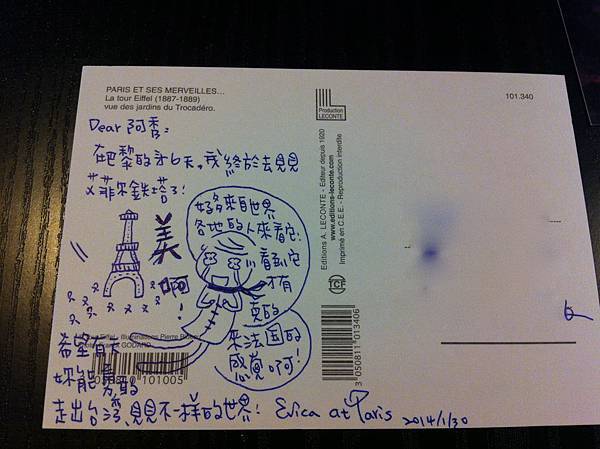 PARIS ET SES MERVEILLES...
La tour Eiffel (1887-1889)
vue des jardins du Trocadéro.
Production
LECONTE
101.340
Dear 阿秀:
在巴黎的才6天,我終於去見見
艾菲尔鉄塔了!
美
啊!
好多來自世界
各地的人來看它!
看到它
才有
真的
來法国的
感覺啊!
希望有天
妳能勇敢的
走出台湾,見見不一樣的世界!
Erica at Paris
2014/1/30
Editions A. LECONTE - Editeur depuis 1920
www.editions-leconte.com
Imprimé en C.E.E. - Reproduction interdite
TCF
3 050811 013406
101005